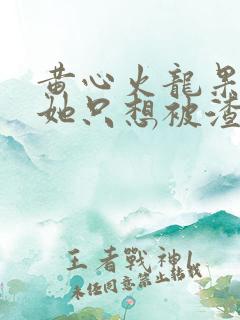 黄心火龍果
她只想被渣
王者戰神1
未任同意禁止轉載